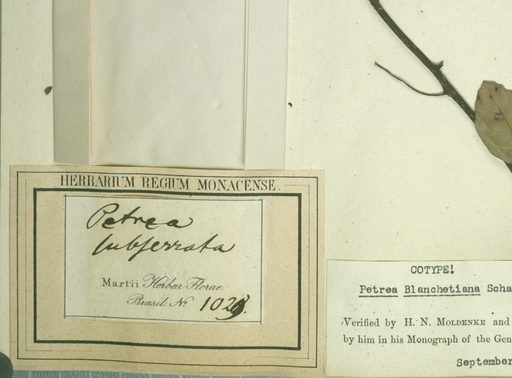 HERBARIUM REGIUM MONACENSE.
Petrea
subserrata
Martii Herbar. Florae
Brasil. No.
COTYPE!
Petrea Blanchetiana Scha
Verified by H. N. MOLDENKE and
by him in his Monograph of the Gen
September